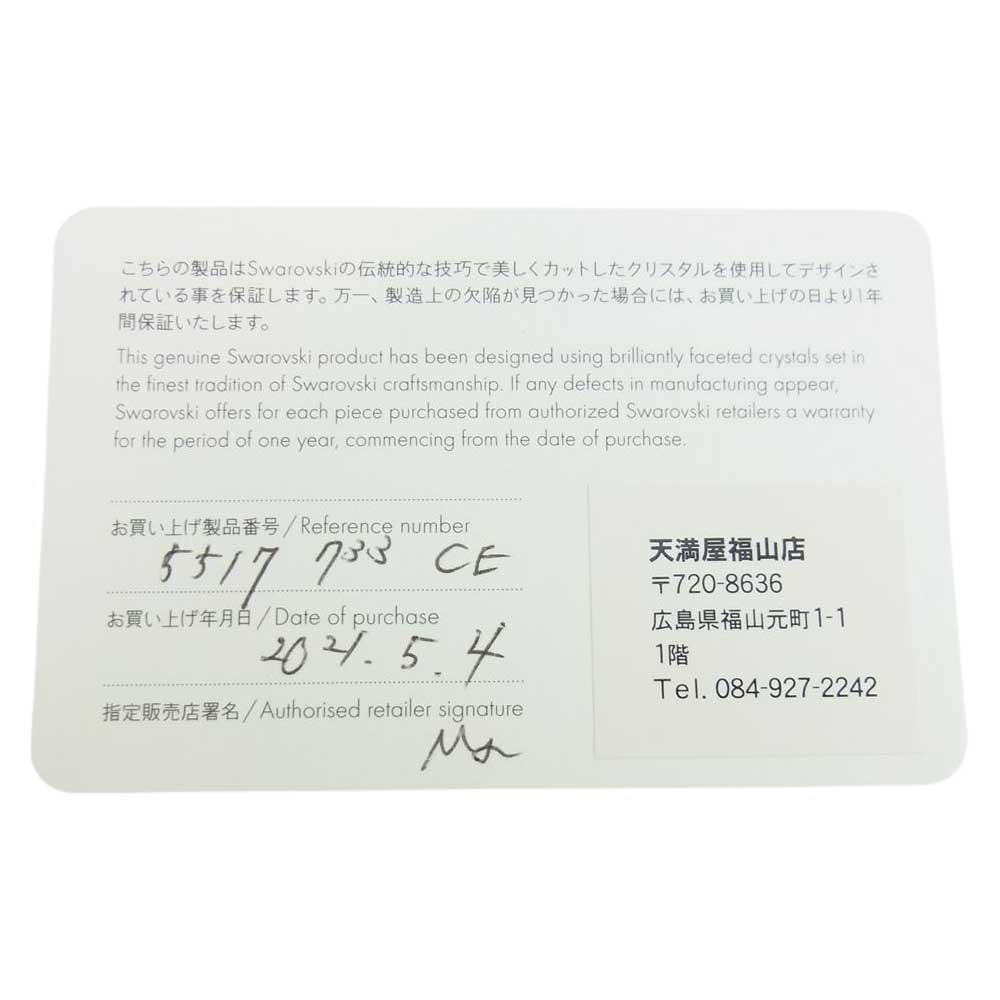 こちらの製品はSwarovskiの伝統的な技巧で美しくカットしたクリスタルを使用してデザインさ
れている事を保証します。万一、製造上の欠陥が見つかった場合には、お買い上げの日より1年
間保証いたします。
This genuine Swarovski product has been designed using brilliantly faceted crystals set in
the finest tradition of Swarovski craftsmanship. If any defects in manufacturing appear,
Swarovski offers for each piece purchased from authorized Swarovski retailers a warranty
for the period of one year, commencing from the date of purchase.
お買い上げ製品番号/Reference number
5517 733 CE
お買い上げ年月日/Date of purchase
2021.5.4
指定販売店署名/Authorised retailer signature
天満屋福山店
〒720-8636
広島県福山元町1-1
1階
Tel. 084-927-2242